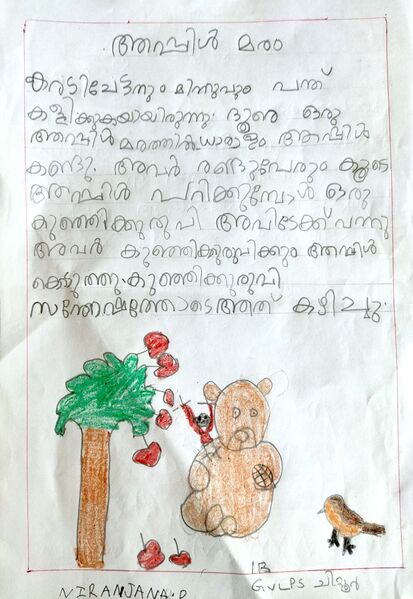 ആപ്പിൾ മരം
കരടിചേട്ടനും മിന്നുവും പന്ത്
കളിക്കുകയായിരുന്നു. ദൂരെ ഒരു
ആപ്പിൾ മരത്തിൽ ധാരാളം ആപ്പിൾ
കണ്ടു. അവർ രണ്ടുപേരും കൂടെ
ആപ്പിൾ പറിക്കുമ്പോൾ ഒരു
കുഞ്ഞിക്കുരുവി അവിടേക്ക് വന്നു
അവർ കുഞ്ഞിക്കുരുവിക്കും ആപ്പിൾ
കൊടുത്തു. കുഞ്ഞിക്കുരുവി
സന്തോഷത്തോടെ അത് കഴിച്ചു.
NIRANJANA.P
1B
GVLPS ചിറ്റൂർ